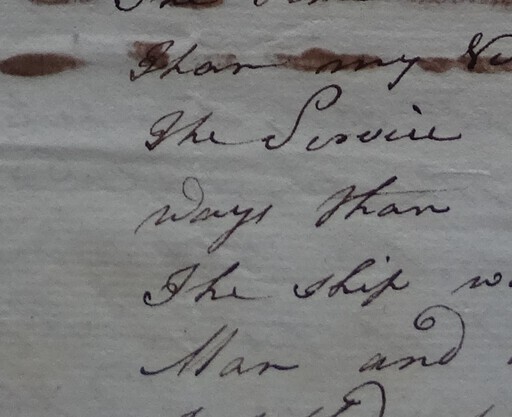 The
than my
the Service
ways than
The ship
Man and